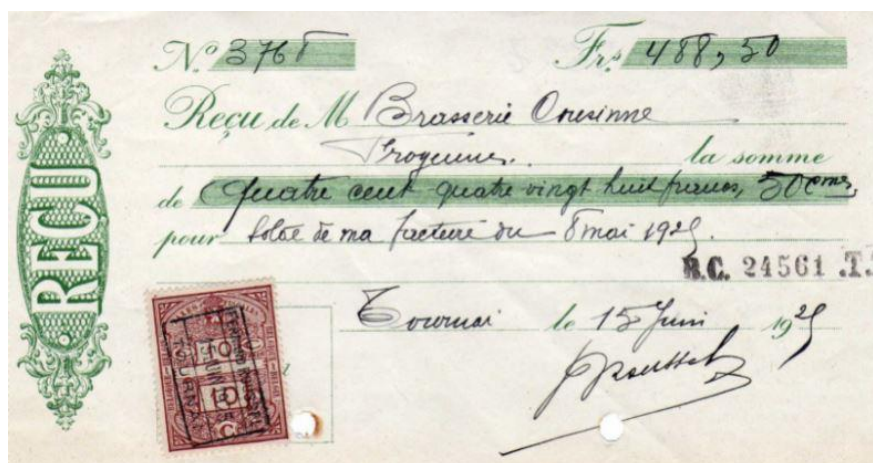 REÇU
N.º 3768 Frs 488,50
Reçu de M Brasserie Cousinne
Froyennes. la somme
de Quatre cent quatre vingt huit francs, 50 cmes
pour Solde de ma facture du 8 mai 1925.
B.C. 24561 .T.
Tournai le 15 Juin 1925
10 10
TOURNAI